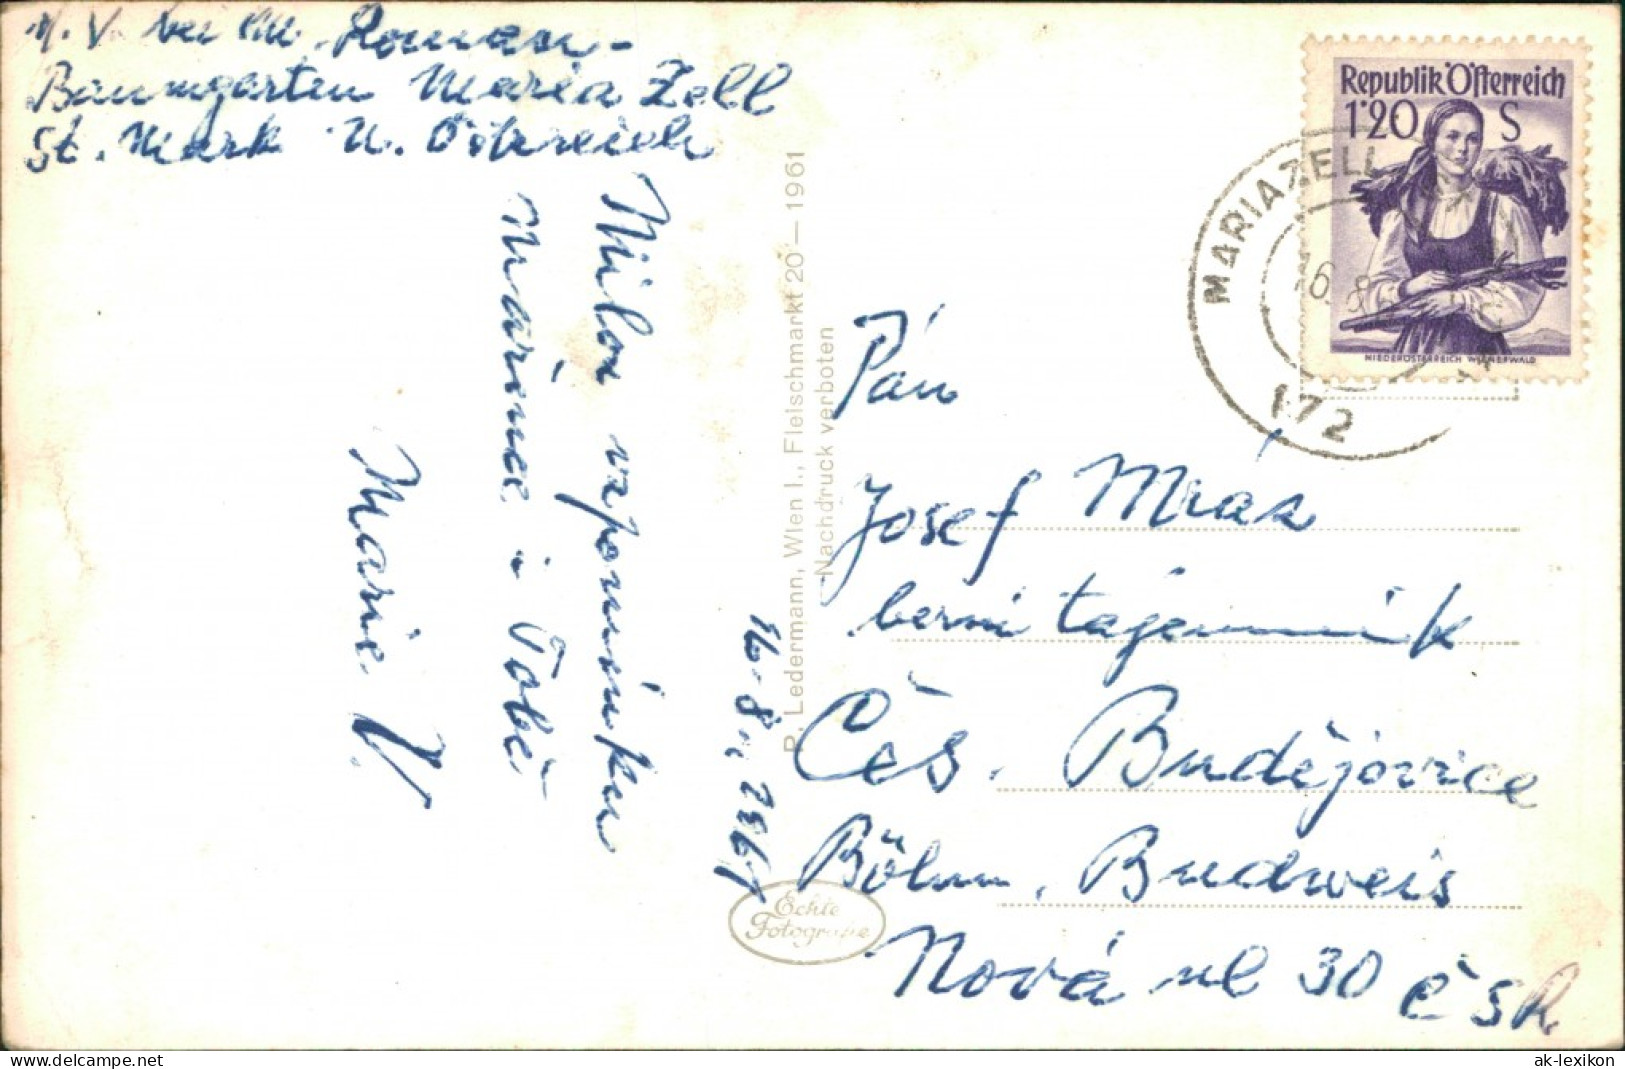 M. V. bei M. Roman-
Baumgarten Maria Zell
St. Mark N. Östreich
Milou vzpomínku
Mařence i Tobě
Marie V.
16.8.1961
P. Ledermann, Wien I., Fleischmarkt 20—1961
Nachdruck verboten
Echte
Fotografie
Republik Österreich
1·20 S
NIEDERÖSTERREICH WIENERWALD
MARIAZELL
16. 8.
172
Pán
Josef Mráz
berní tajemník
Čes. Budějovice
Böhm. Budweis
Nová ul 30 ČSR
ak-lexikon